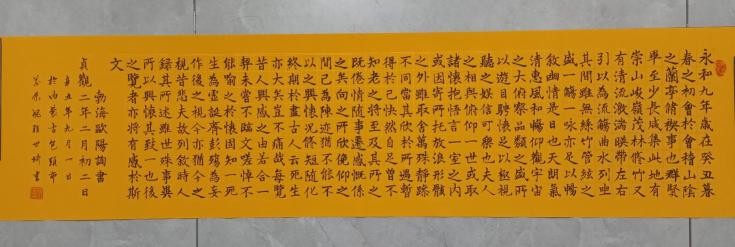 永和九年歲在癸丑暮
春之初會於會稽山陰
之蘭亭脩稧事也群賢
畢至少長咸集此地有
崇山峻嶺茂林脩竹又
有清流激湍暎帶左右
引以為流觴曲水列坐
其間雖無絲竹管絃之
盛一觴一詠亦足以暢
敘幽情是日也天朗氣
清惠風和暢仰觀宇宙
之大俯察品類之盛所
以遊目騁懷足以極視
聽之娛信可樂也夫人
之相與俯仰一世或取
諸懷抱悟言一室之內
或因寄所託放浪形骸
之外雖取舍萬殊靜躁
不同當其欣於所遇暫
得於己怏然自足曾不
知老之將至及其所之
既倦情隨事遷感慨係
之矣向之所欣俛仰之
間已為陳迹猶不能不
以之興懷況脩短隨化
終期於盡古人云死生
亦大矣豈不痛哉每覽
昔人興感之由若合一
契未嘗不臨文嗟悼不
能喻之於懷固知一死
生為虛誕齊彭殤為妄
作後之視今亦猶今之
視昔悲夫故列敘時人
錄其所述雖世殊事異
所以興懷其致一也後
之覽者亦將有感於斯
文
勃海歐陽詢書
貞觀二年二月初二日
辛丑年九月一日
於內蒙古包頭市